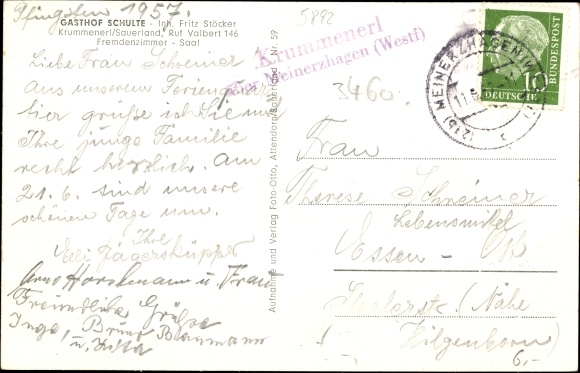 Pfingsten 1957.
GASTHOF SCHULTE - Inh. Fritz Stöcker
Krummenerl/Sauerland, Ruf Valbert 146
Fremdenzimmer - Saal
Liebe Frau Schreiner
aus unserem Ferienort
hier grüße ich Sie und
Ihre junge Familie
recht herzlich. Am
21.6. sind unsere
schönen Tage um.
Ihre
Arno Horstmann u. Frau
Freundliche Grüße
Inge, Bruno Baumann
u. Jutta
Aufnahme und Verlag Foto-Otto, Attendorn/Sauerland Nr. 59
5892
Krummenerl
über Meinerzhagen (Westf)
3460
MEINERZHAGEN (W
(21b)
10
DEUTSCHE
BUNDESPOST
Frau
Therese Schreiner
Lebensmittel
Essen -
(Nähe
6,-